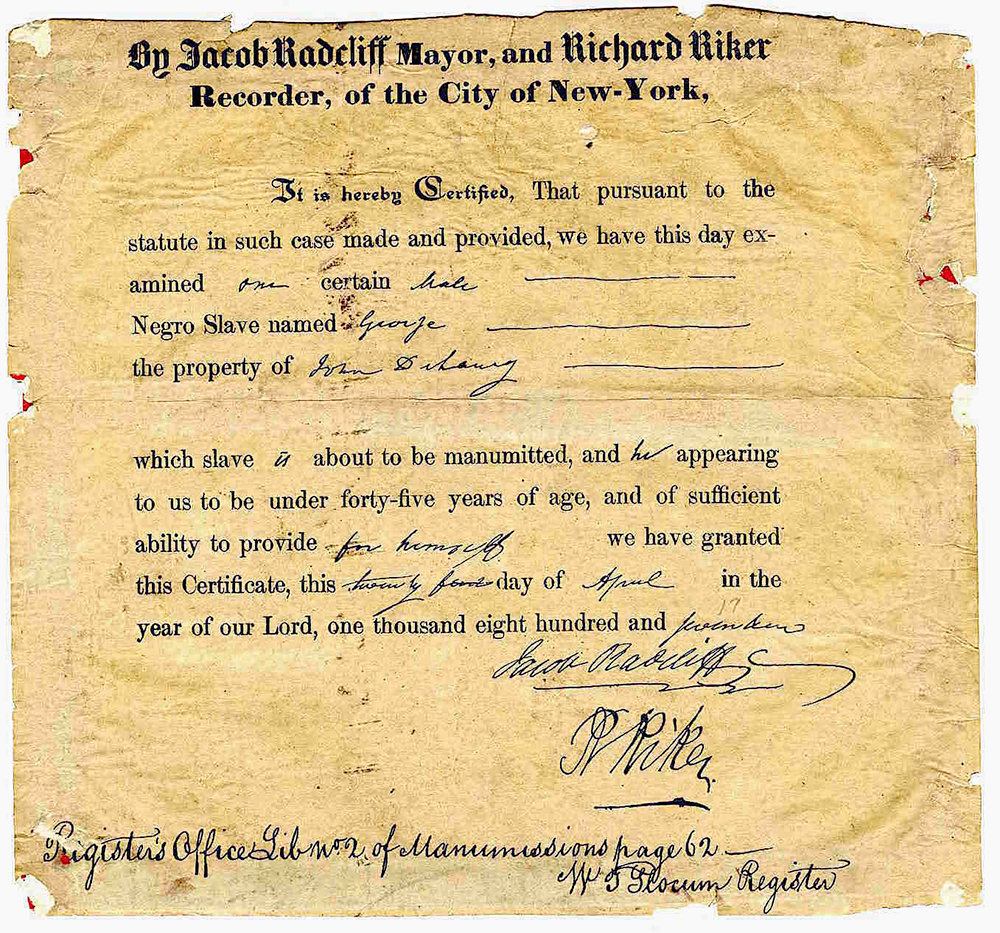 By Jacob Radcliff Mayor, and Richard Riker
Recorder, of the City of New-York,
It is hereby Certified, That pursuant to the
statute in such case made and provided, we have this day ex-
amined one certain Male
Negro Slave named George
the property of John
which slave is about to be manumitted, and he appearing
to us to be under forty-five years of age, and of sufficient
ability to provide for himself we have granted
this Certificate, this twenty day of April in the
17
year of our Lord, one thousand eight hundred and seventeen
Jacob Radcliff
R Riker
Register's Office Lib No. 2 of Manumissions page 62
Register